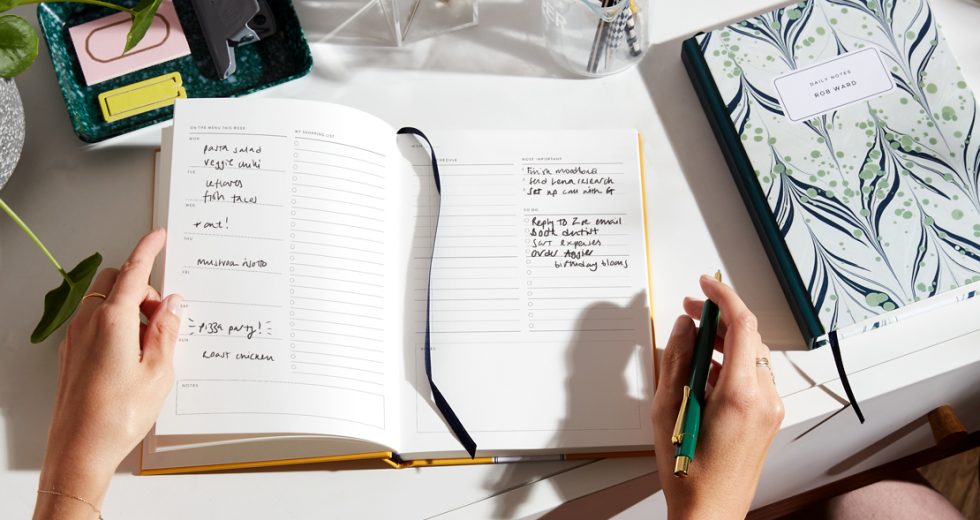 ON THE MENU THIS WEEK
MON
pasta salad
veggie chilli
TUE
leftovers
fish tacos
WED
out!
THU
mushroom risotto
FRI
pizza party!
SUN
roast chicken
NOTES
MY SHOPPING LIST
MOST IMPORTANT
Finish moodboard
Send Lena research
Set up call with G
TO DO
Reply to Zoe email
Book dentist
Sort expenses
order Aggies
birthday blooms
NOTES
DAILY NOTES
ROB WARD